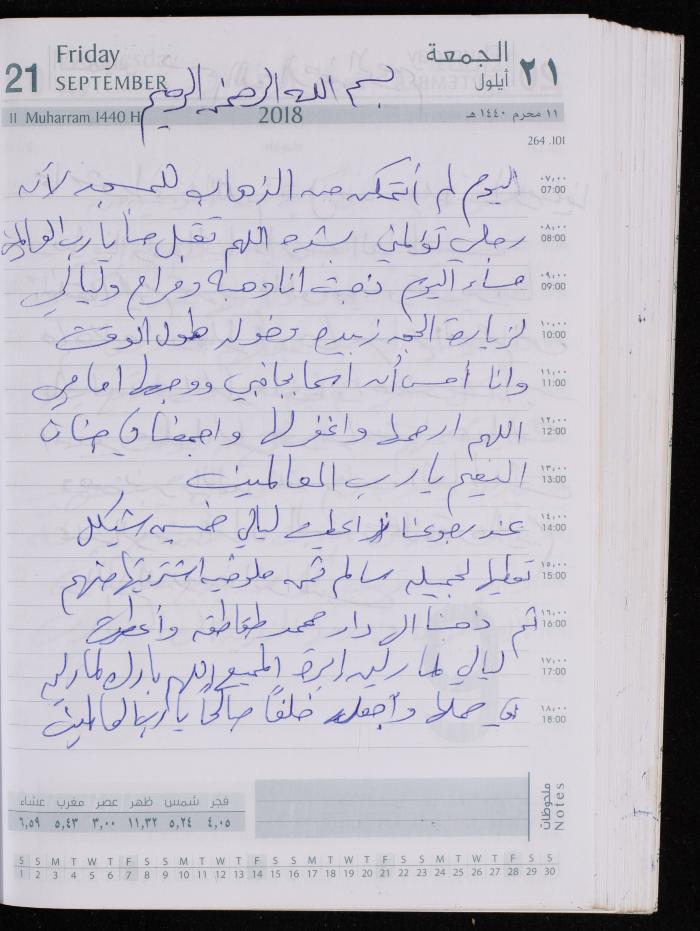 21
Friday
SEPTEMBER
الجمعة
أيلول
٢١
بسم الله الرحمن الرحيم
11 Muharram 1440 H
2018
١١ محرم ١٤٤٠ هـ
264 .101
٠٧,٠٠
07:00
اليوم لم أتمكن من الذهاب للمسجد لأن
٠٨,٠٠
08:00
رجلي تؤلمني بشده اللهم تقبل منا يا رب العالمين
٠٩,٠٠
09:00
مساء اليوم ذهبت انا وهبه ومرام وليالي
١٠,٠٠
10:00
لزيارة الحجه زبيده طول الوقت
١١,٠٠
11:00
وانا أحس أن بجانبي امامي
١٢,٠٠
12:00
اللهم ارحمها واغفر لها واجمعنا في جنات
١٣,٠٠
13:00
النعيم يا رب العالمين
١٤,٠٠
14:00
عند رجوعنا ليالي خمسين شيكل
١٥,٠٠
15:00
تعطيها لجميله سالم ثمن ملوخيه اشتريتها منهم
١٦,٠٠
16:00
ثم ذهبنا الى دار محمد طقاطقه وأعطت
١٧,٠٠
17:00
ليالي اللهم بارك
١٨,٠٠
18:00
في حملها وأجعله خلفًا صالحًا يا رب العالمين
ملحوظات
Notes
فجر شمس ظهر عصر مغرب عشاء
٤,٠٥ ٥,٢٤ ١١,٣٢ ٣,٠٠ ٥,٤٣ ٦,٥٩
S S M T W T F S S M T W T F S S M T W T F S S M T W T F S S
1 2 3 4 5 6 7 8 9 10 11 12 13 14 15 16 17 18 19 20 21 22 23 24 25 26 27 28 29 30